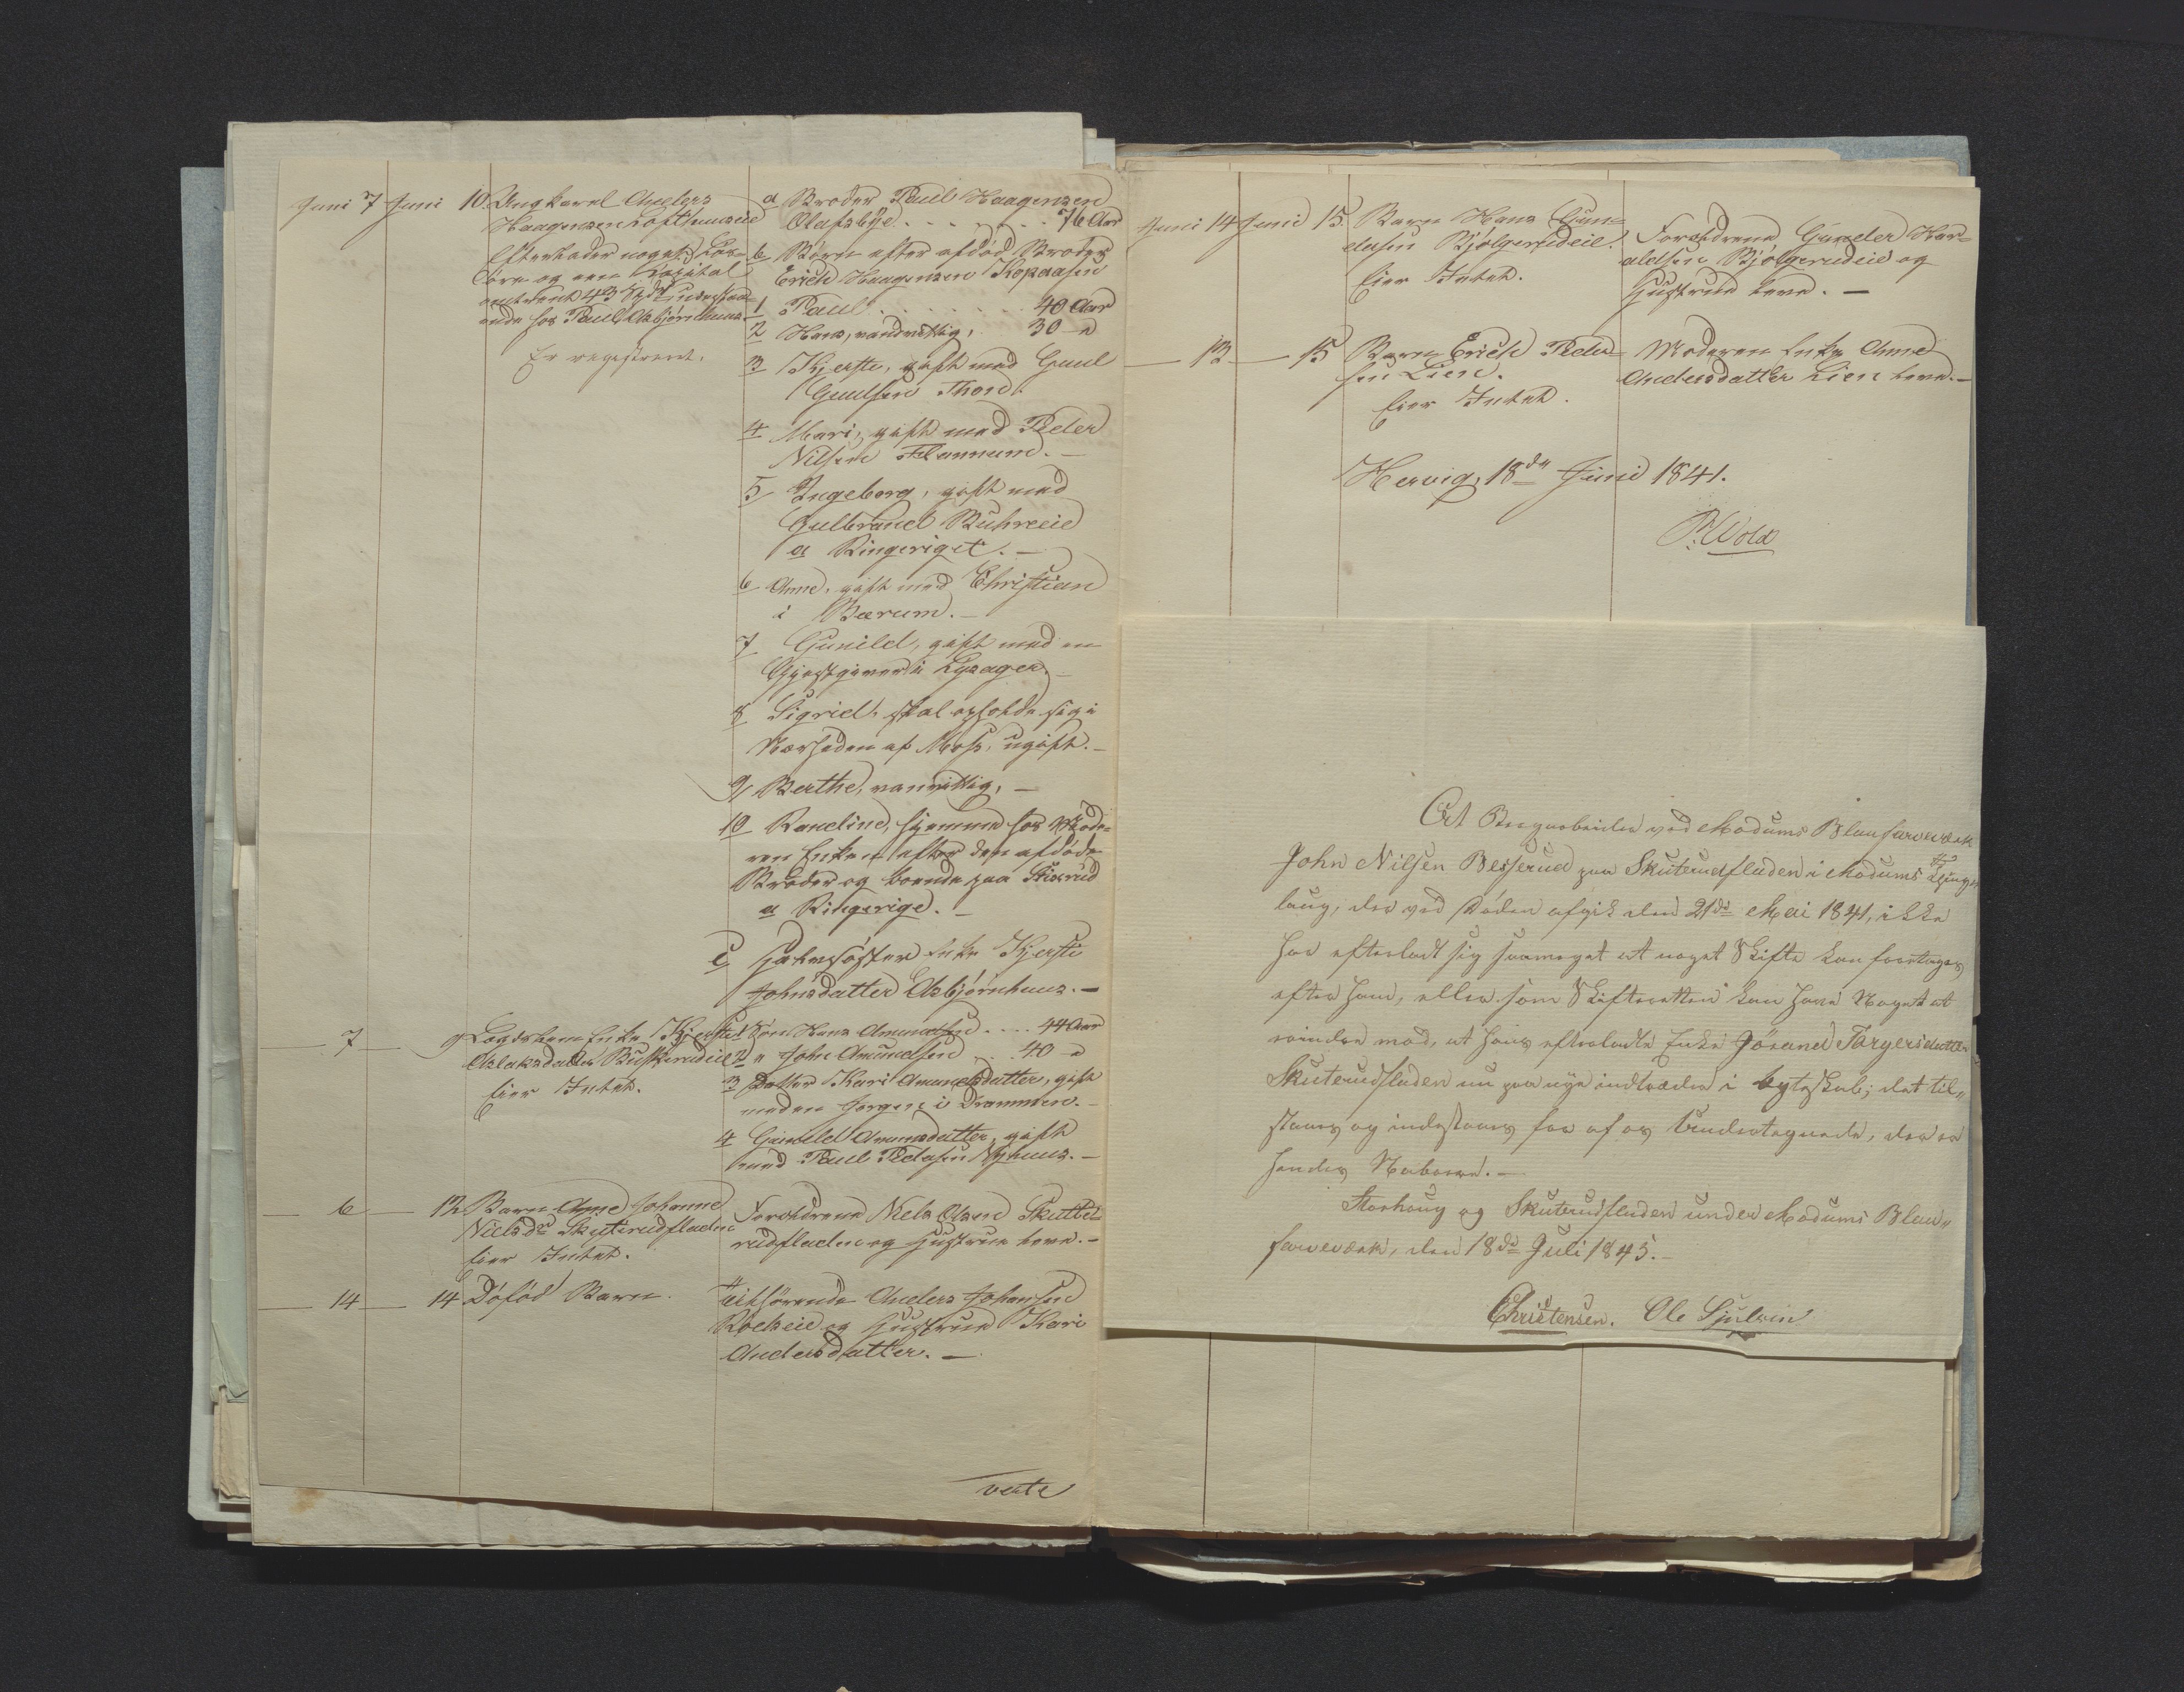 Juni 7 Juni 10. Ungkarl Anders
Haagensen Lofthuuseie
Efterlader noget Løs-
øre og en Kapital
omtrent 43 Spd indestaa-
ende hos Paul Asbjørnhuus.
Er registreret.
a Broder Paul Haagensen
Olafsbye . . . . . . 76 Aar
b Børn efter afdød Broder
Erich Haagensen Kopaasen
1 Paul . . . . . . 40 Aar
2 Hans, vandvittig, 30 -"-
3 Kjersti, gift med Guul
Guulsen Thon.
4 Mari, gift med Peder
Nilsen Flannum. —
5 Ingeborg, gift med
Gulbrand Buhreeie
a Ringeriget. —
6 Anne, gift med Christian
i Bærum. —
7 Gunild, gift med en
Gjestgiver i Lysager. —
8 Sigrid, skal opholde sig i
Nærheden af Moss, ugift. —
9 Berthe, vanvittig, —
10 Randine, hjemme hos Mode-
ren Enken efter den afdøde
Broder og boende paa Stixrud
a Ringerige. —
c Halvsøster Enke Kjersti
Johnsdatter Asbjørnhuus. —
— 7 — 9 Lægdslem Enke Kjersti
Aslaksdatter Buskerudeie
Eier Intet.
1 Søn Hans Amundsen . . . . 44 Aar
2 " John Amundsen . . 40 -"-
3 Datter Kari Amundsdatter, gift
med en Jørgen i Drammen. —
4 Gunild Amundsdatter, gift
med Paul Pedersen Nyhuus. —
— 6 — 12 Barn Anne Johanne
Nielsdr Skuterudfladen
Eier Intet.
Forældrene Niels Olsen Skutte-
rudfladen og Hustrue leve. —
— 14 — 14 Døfød Barn.
Tilhørende Anders Johansen
Kolseie og Hustrue Kari
Andersdatter. —
verte
Juni 14 Juni 15. Barn Hans Gun-
dersen Bjølgerudeie.
Eier Intet.
Forældrene Gunder Har-
aldsen Bjølgerudeie og
Hustrue leve. —
— 13 — 15 Barn Erich Peder-
sen Lien.
Eier Intet.
Moderen Enke Anne
Andersdatter Lien leve. —
Hervig, 18de Juni 1841.
P. Wold
At Bergarbeider ved Modums Blaufarveværk
John Nilsen Besserud paa Skuterudfladen i Modums Thing-
laug, der ved Døden afgik den 21de Mai 1841, ikke
har efterladt sig saameget at noget Skifte kan foretages
efter ham, eller som Skifteretten kan have Noget at
erindre mod, at hans efterladte Enke Jørand Torgersdatter
Skuterudfladen nu paa nye indtræder i Ægteskab; det til-
staaes og indestaaes for af os Undertegnede, der er
hendes Naboer. —
Storhoug og Skuterudfladen under Modums Blau-
farveværk, den 18de Juli 1845. —
Christensen. Ole Sjulsen